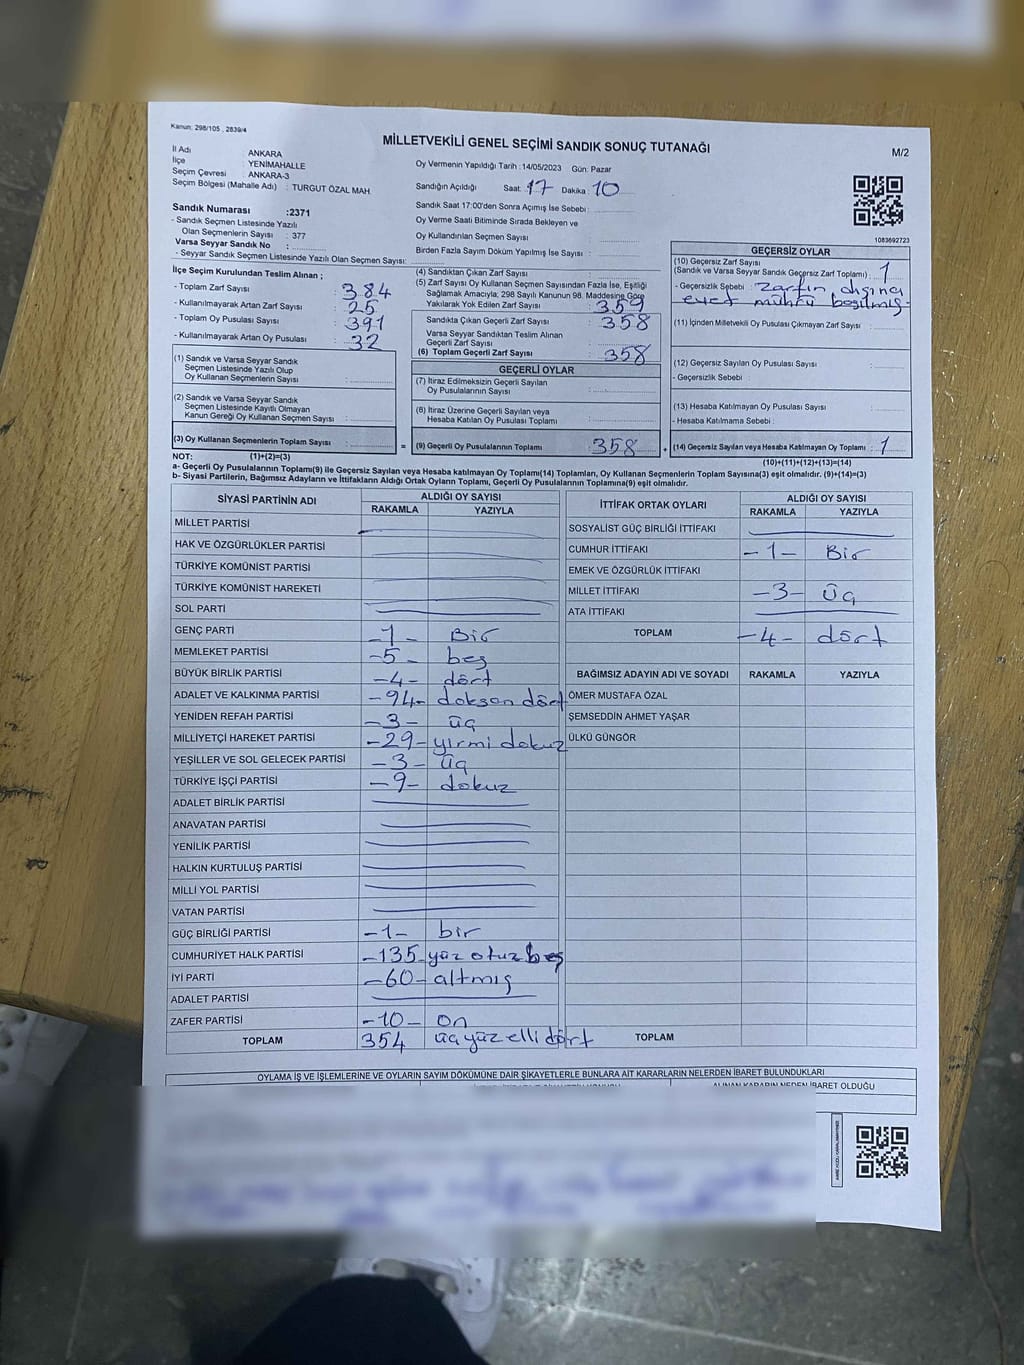 Kanun: 298/105 , 2839/4
MİLLETVEKİLİ GENEL SEÇİMİ SANDIK SONUÇ TUTANAĞI
M/2
İl Adı : ANKARA
İlçe : YENİMAHALLE
Seçim Çevresi : ANKARA-3
Seçim Bölgesi (Mahalle Adı) : TURGUT ÖZAL MAH.
Sandık Numarası :2371
- Sandık Seçmen Listesinde Yazılı
Olan Seçmenlerin Sayısı : 377
Varsa Seyyar Sandık No :
- Seyyar Sandık Seçmen Listesinde Yazılı Olan Seçmen Sayısı:
Oy Vermenin Yapıldığı Tarih : 14/05/2023 Gün: Pazar
Sandığın Açıldığı Saat: 17 Dakika 10
Sandık Saat 17:00'den Sonra Açılmış İse Sebebi:
Oy Verme Saati Bitiminde Sırada Bekleyen ve
Oy Kullandırılan Seçmen Sayısı :
Birden Fazla Sayım Döküm Yapılmış İse Sayısı :
1083692723
İlçe Seçim Kurulundan Teslim Alınan ;
- Toplam Zarf Sayısı : 384
- Kullanılmayarak Artan Zarf Sayısı : 25
- Toplam Oy Pusulası Sayısı : 391
- Kullanılmayarak Artan Oy Pusulası : 32
(1) Sandık ve Varsa Seyyar Sandık
Seçmen Listesinde Yazılı Olup
Oy Kullanan Seçmenlerin Sayısı :
(2) Sandık ve Varsa Seyyar Sandık
Seçmen Listesinde Kayıtlı Olmayan
Kanun Gereği Oy Kullanan Seçmen Sayısı :
(3) Oy Kullanan Seçmenlerin Toplam Sayısı :
(1)+(2)=(3)
(4) Sandıktan Çıkan Zarf Sayısı :
(5) Zarf Sayısı Oy Kullanan Seçmen Sayısından Fazla İse, Eşitliği
Sağlamak Amacıyla; 298 Sayılı Kanunun 98. Maddesine Göre
Yakılarak Yok Edilen Zarf Sayısı : 359
Sandıkta Çıkan Geçerli Zarf Sayısı : 358
Varsa Seyyar Sandıktan Teslim Alınan
Geçerli Zarf Sayısı :
(6) Toplam Geçerli Zarf Sayısı : 358
GEÇERLİ OYLAR
(7) İtiraz Edilmeksizin Geçerli Sayılan
Oy Pusulalarının Sayısı :
(8) İtiraz Üzerine Geçerli Sayılan veya
Hesaba Katılan Oy Pusulası Toplamı :
= (9) Geçerli Oy Pusulalarının Toplamı : 358 +
GEÇERSİZ OYLAR
(10) Geçersiz Zarf Sayısı
(Sandık ve Varsa Seyyar Sandık Geçersiz Zarf Toplamı) : 1
- Geçersizlik Sebebi : zarfın dışına
evet mührü basılmış.
(11) İçinden Milletvekili Oy Pusulası Çıkmayan Zarf Sayısı :
(12) Geçersiz Sayılan Oy Pusulası Sayısı :
- Geçersizlik Sebebi :
(13) Hesaba Katılmayan Oy Pusulası Sayısı :
- Hesaba Katılmama Sebebi :
(14) Geçersiz Sayılan veya Hesaba Katılmayan Oy Toplamı : 1
(10)+(11)+(12)+(13)=(14)
NOT:
a- Geçerli Oy Pusulalarının Toplamı(9) ile Geçersiz Sayılan veya Hesaba katılmayan Oy Toplamı(14) Toplamları, Oy Kullanan Seçmenlerin Toplam Sayısına(3) eşit olmalıdır. (9)+(14)=(3)
b- Siyasi Partilerin, Bağımsız Adayların ve İttifakların Aldığı Ortak Oyların Toplamı, Geçerli Oy Pusulalarının Toplamına(9) eşit olmalıdır.
SİYASİ PARTİNİN ADI ALDIĞI OY SAYISI
RAKAMLA YAZIYLA
MİLLET PARTİSİ
HAK VE ÖZGÜRLÜKLER PARTİSİ
TÜRKİYE KOMÜNİST PARTİSİ
TÜRKİYE KOMÜNİST HAREKETİ
SOL PARTİ
GENÇ PARTİ -1- Bir
MEMLEKET PARTİSİ -5- beş
BÜYÜK BİRLİK PARTİSİ -4- dört
ADALET VE KALKINMA PARTİSİ -94- doksan dört
YENİDEN REFAH PARTİSİ -3- üç
MİLLİYETÇİ HAREKET PARTİSİ -29- yirmi dokuz
YEŞİLLER VE SOL GELECEK PARTİSİ -3- üç
TÜRKİYE İŞÇİ PARTİSİ -9- dokuz
ADALET BİRLİK PARTİSİ
ANAVATAN PARTİSİ
YENİLİK PARTİSİ
HALKIN KURTULUŞ PARTİSİ
MİLLİ YOL PARTİSİ
VATAN PARTİSİ
GÜÇ BİRLİĞİ PARTİSİ -1- bir
CUMHURİYET HALK PARTİSİ -135- yüz otuz beş
İYİ PARTİ -60- altmış
ADALET PARTİSİ
ZAFER PARTİSİ -10- on
TOPLAM 354 üç yüz elli dört
İTTİFAK ORTAK OYLARI ALDIĞI OY SAYISI
RAKAMLA YAZIYLA
SOSYALİST GÜÇ BİRLİĞİ İTTİFAKI
CUMHUR İTTİFAKI -1- Bir
EMEK VE ÖZGÜRLÜK İTTİFAKI
MİLLET İTTİFAKI -3- üç
ATA İTTİFAKI
TOPLAM -4- dört
BAĞIMSIZ ADAYIN ADI VE SOYADI RAKAMLA YAZIYLA
ÖMER MUSTAFA ÖZAL
ŞEMSEDDİN AHMET YAŞAR
ÜLKÜ GÜNGÖR
TOPLAM
OYLAMA İŞ VE İŞLEMLERİNE VE OYLARIN SAYIM DÖKÜMÜNE DAİR ŞİKAYETLERLE BUNLARA AİT KARARLARIN NELERDEN İBARET BULUNDUKLARI
ALINAN KARARIN NEDEN İBARET OLDUĞU